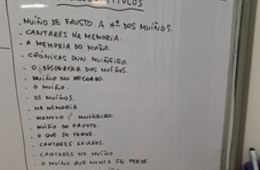 TITULOS
- MUIÑO DE FAUSTO. A Hª DOS MUIÑOS.
- CANTARES NA MEMORIA.
- A MEMORIA DO MUIÑO.
- CRÓNICAS DUN MUIÑEIRO.
- O DESPERTAR DOS MUIÑOS.
- MUIÑO NO RECORDO.
- O MUIÑO.
- OS MUIÑOS.
- NA MEMORIA
- MANOLO / MUIÑEIRO.
- MUIÑO DO FAUSTO.
- O QUE SE PERDE.
- CANTARES
- CANTARES NO MUIÑO
- O MUIÑO QUE NUNCA SE PERDE.